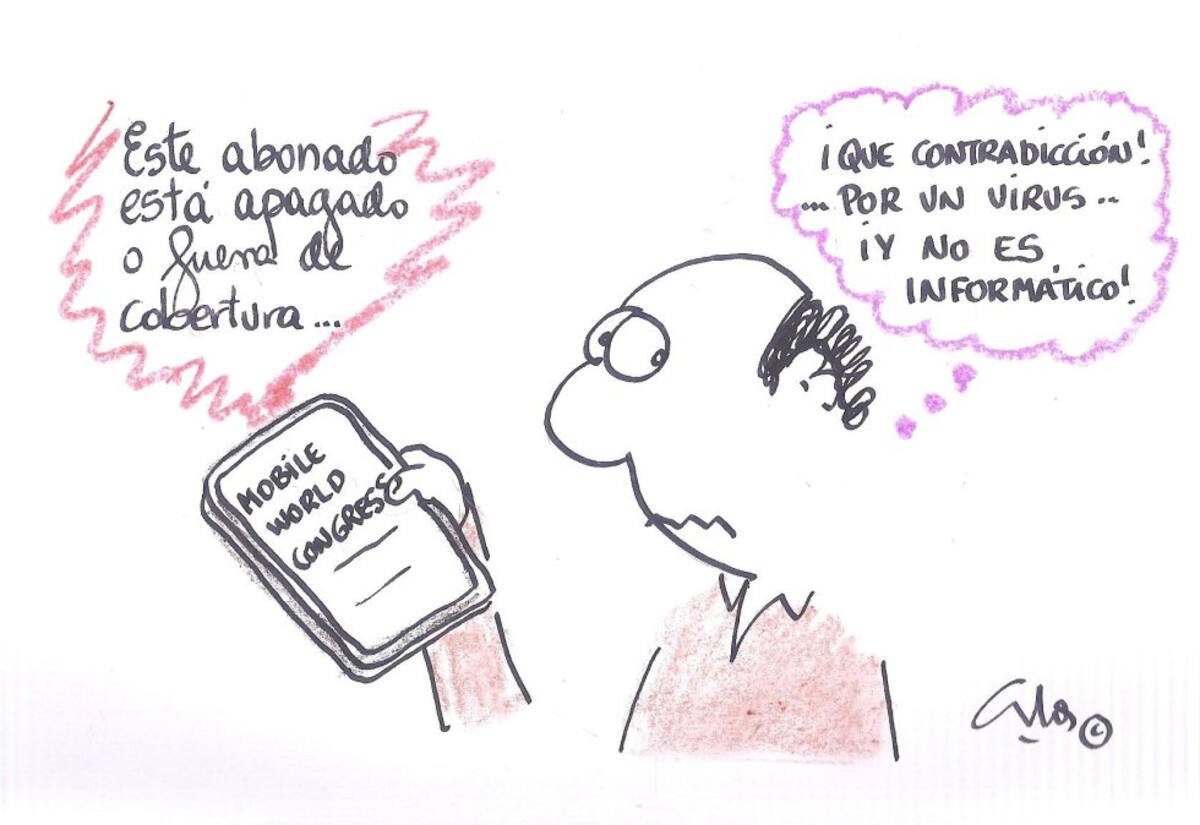 Este abonado
está apagado
o fuera de
cobertura...
¡QUE CONTRADICCIÓN!
... POR UN VIRUS..
¡Y NO ES
INFORMÁTICO!
MOBILE
WORLD
CONGRESS
©